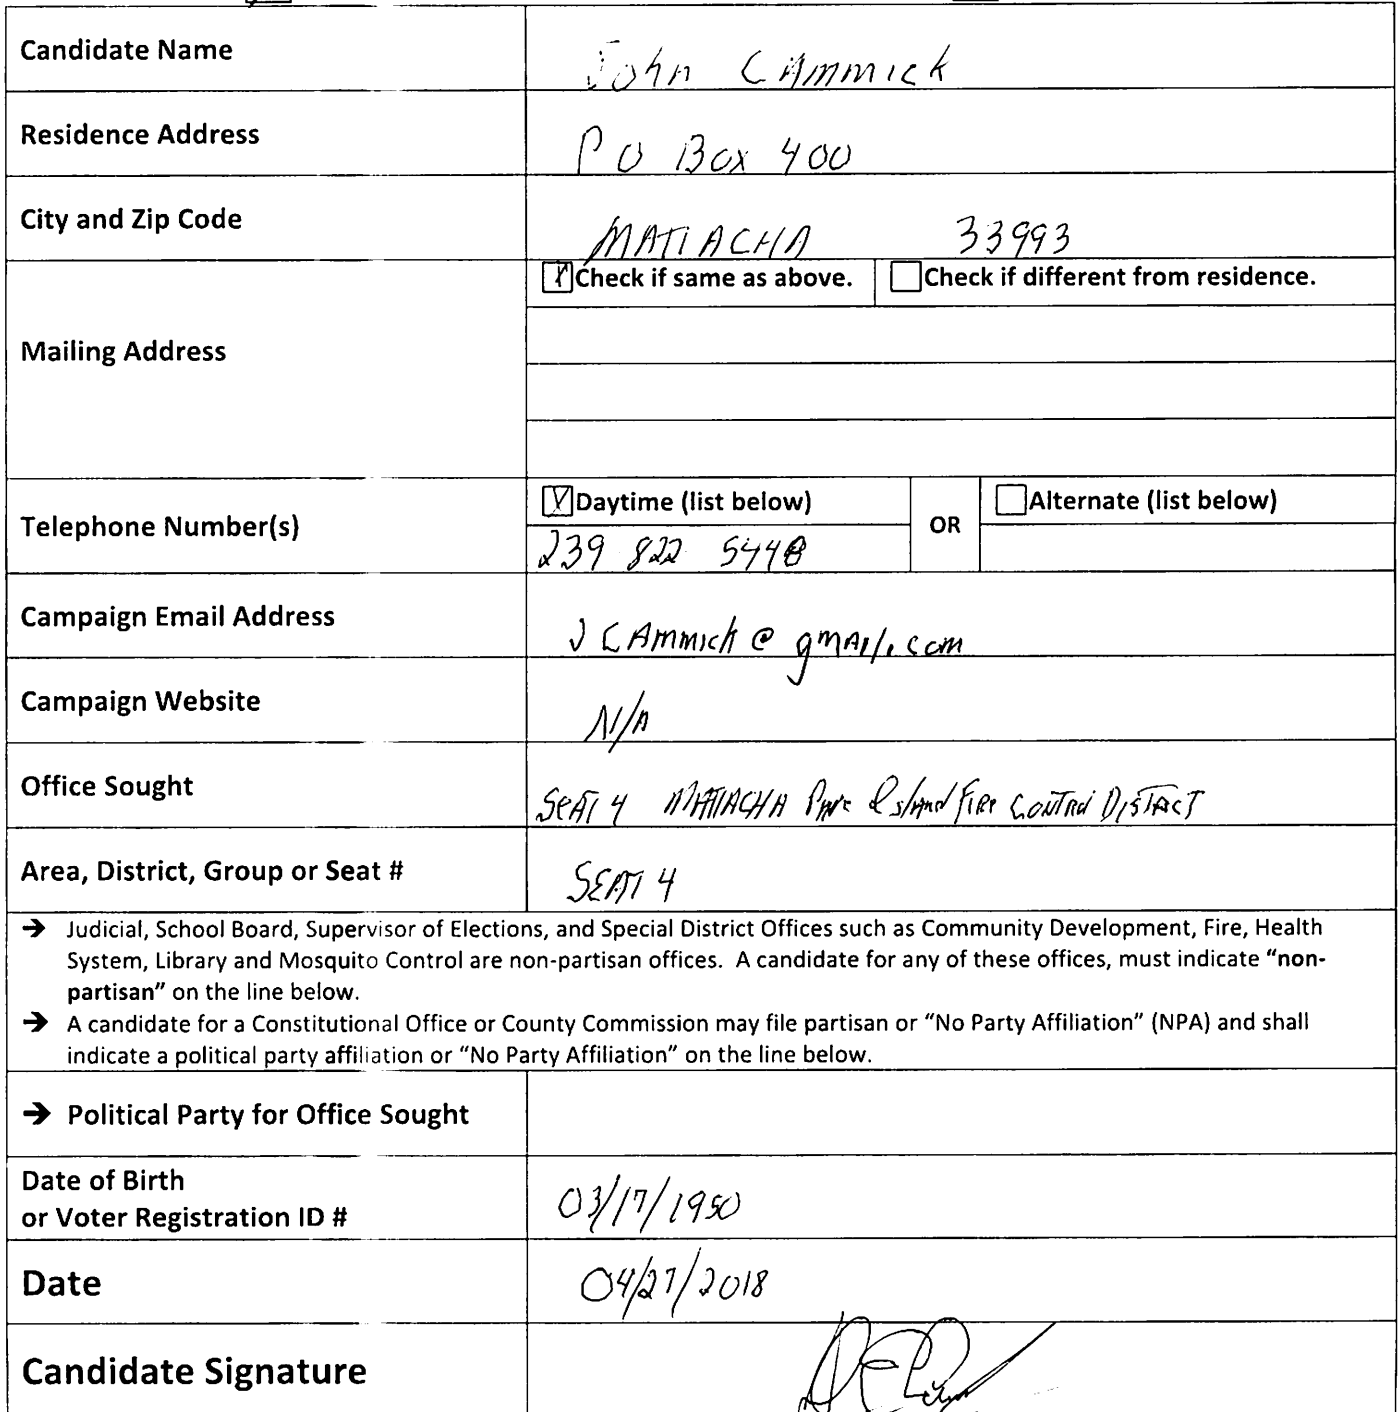 Candidate Name
John CAmmick
Residence Address
P O Box 400
City and Zip Code
MATLACHA 33993
☒ Check if same as above. ☐ Check if different from residence.
Mailing Address
Telephone Number(s)
☒ Daytime (list below)
239 822 5448
OR
☐ Alternate (list below)
Campaign Email Address
JCAmmick@gmAil.com
Campaign Website
N/A
Office Sought
SEAT 4 MATLACHA Pine Island Fire Control DISTRCT
Area, District, Group or Seat #
SEAT 4
→ Judicial, School Board, Supervisor of Elections, and Special District Offices such as Community Development, Fire, Health
System, Library and Mosquito Control are non-partisan offices. A candidate for any of these offices, must indicate "non-
partisan" on the line below.
→ A candidate for a Constitutional Office or County Commission may file partisan or "No Party Affiliation" (NPA) and shall
indicate a political party affiliation or "No Party Affiliation" on the line below.
→ Political Party for Office Sought
Date of Birth
or Voter Registration ID #
03/17/1950
Date
04/27/2018
Candidate Signature